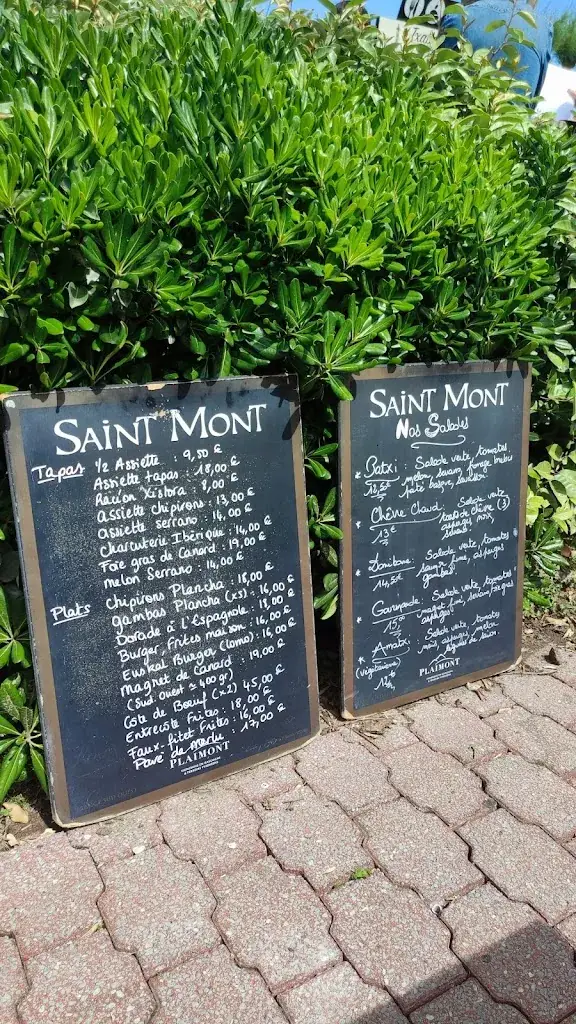 SAINT MONT
Tapas 1/2 Assiette : 9,50 €
Assiette tapas : 18,00 €
Xistora : 8,00 €
assiette chipirons : 13,00 €
assiette serrano : 14,00 €
charcuterie Ibérique : 14,00 €
Foie gras de Canard : 19,00 €
melon Serrano : 14,00 €
Plats chipirons Plancha : 18,00 €
gambas Plancha (x5) : 16,00 €
Dorade à l'Espagnole : 18,00 €
Burger, frites maison : 16,00 €
Euskal Burger (lomo) : 16,00 €
Magret de Canard : 19,00 €
(Sud ouest ≥ 400 gr)
Côte de Boeuf (x2) 45,00 €
Entrecôte Frites : 18,00 €
Faux-filet Frites : 16,00 €
Pavé de merlu : 17,00 €
PLAIMONT
SAINT MONT
Nos Salades
Patxi : Salade verte, tomates
melon,
Chèvre Chaud : Salade verte
13 € (3)
asperges
: Salade verte, tomates
14,50 € asperges
gambas
: Salade verte, tomates
magret fumé,
Amatxi : Salade verte, tomates
(végétarienne) asperges, melon
PLAIMONT